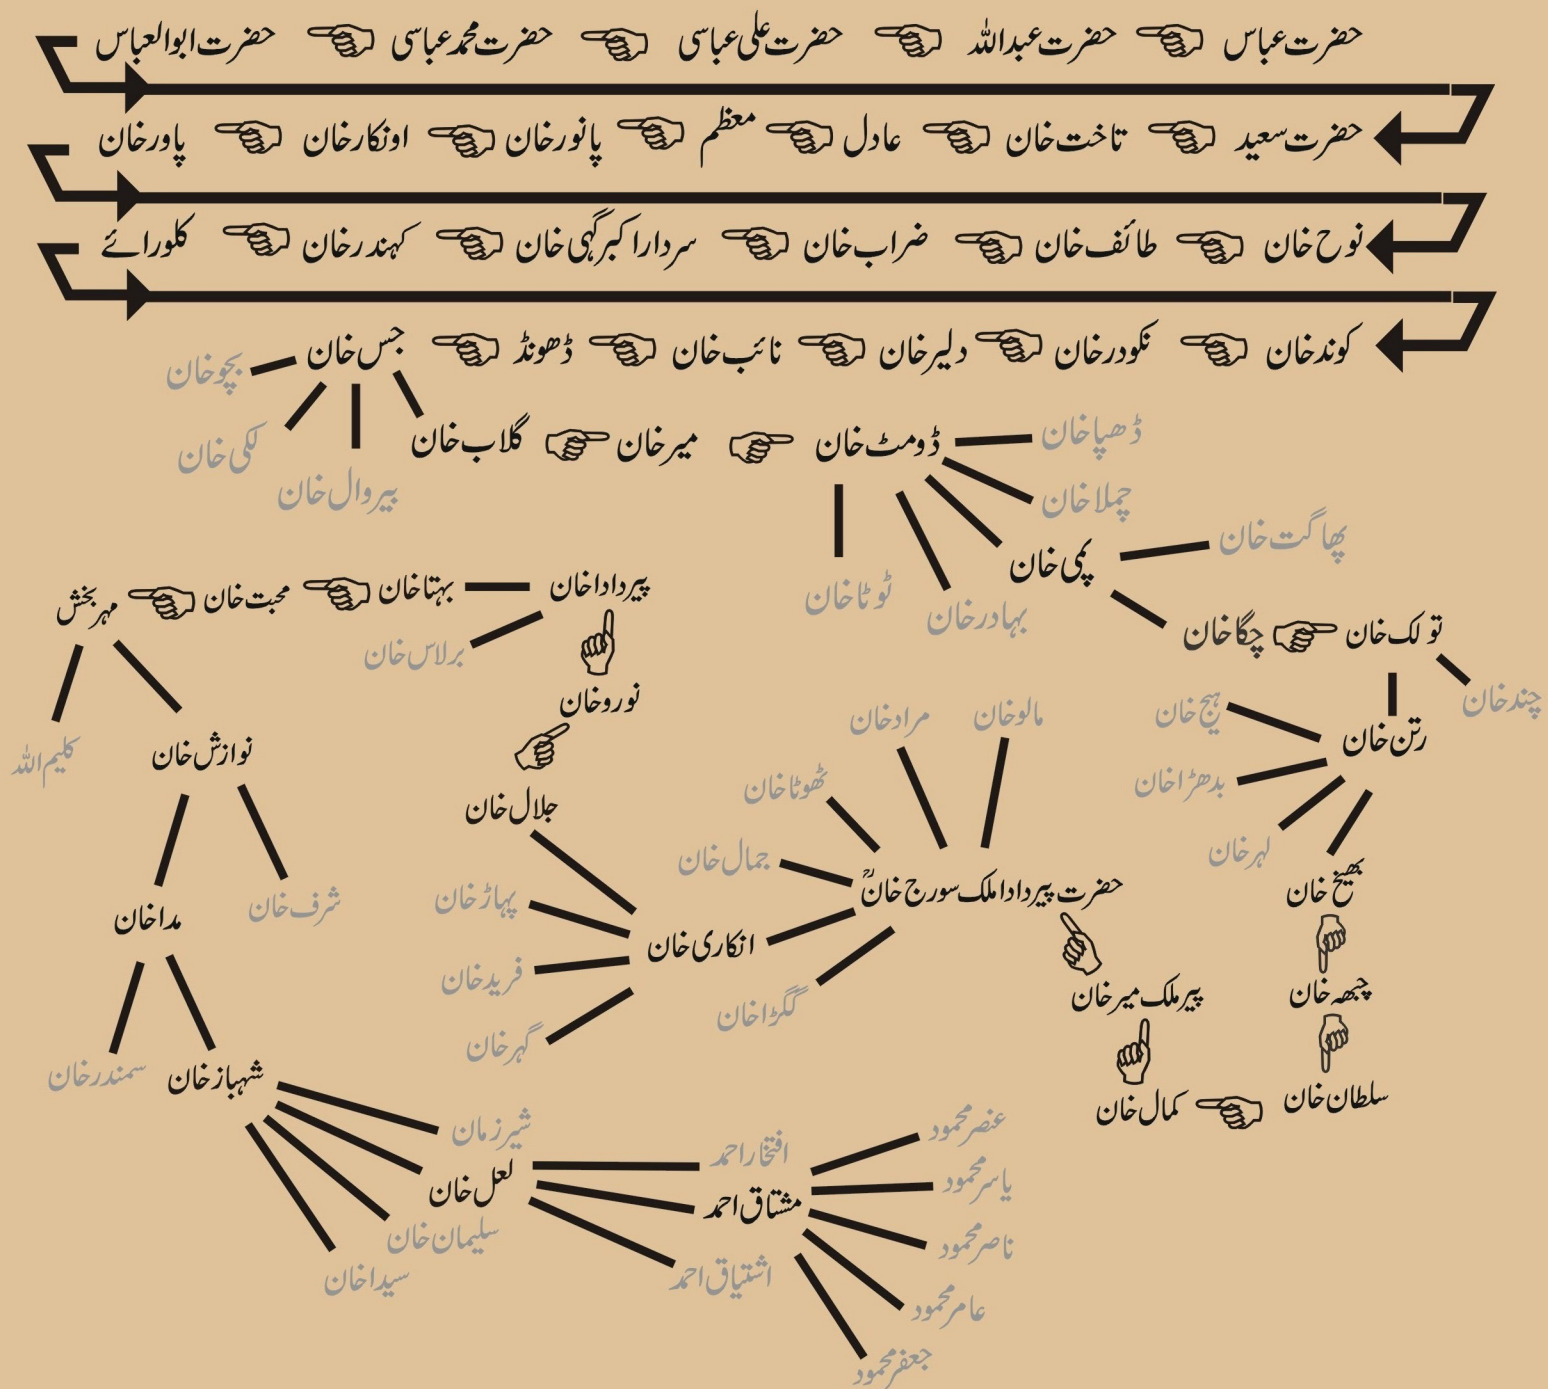 حضرت عباس حضرت عبداللہ حضرت علی عباسی حضرت محمد عباسی حضرت ابوالعباس
حضرت سعید تاخت خان عادل معظم پانور خان اونکار خان پاور خان
نوح خان طائف خان ضراب خان سردار اکبر گہی خان کہندر خان کلورائے
کوند خان نکودر خان دلیر خان نائب خان ڈھونڈ جس خان
بچو خان
لکی خان
بیروال خان
گلاب خان میر خان ڈومٹ خان
ڈھپا خان
چملا خان
پمی خان
بہادر خان
ٹوٹا خان
پھاگت خان
چگا خان تولک خان
چند خان
رتن خان
ہیج خان
بدھڑا خان
لہر خان
بھیخ خان
چبھہ خان
سلطان خان
کمال خان
پیر ملک میر خان
حضرت پیر دادا ملک سورج خانؒ
مالو خان
مراد خان
ٹھوٹا خان
جمال خان
انکاری خان
گگڑا خان
جلال خان
پہاڑ خان
فرید خان
گہر خان
نورو خان
پیر دادا خان
بہتا خان
برلاس خان
محبت خان
مہر بخش
کلیم اللہ
نوازش خان
شرف خان
مدا خان
سمندر خان
شہباز خان
شیر زمان
لعل خان
سلیمان خان
سیدا خان
افتخار احمد
مشتاق احمد
اشتیاق احمد
عنصر محمود
یاسر محمود
ناصر محمود
عامر محمود
جعفر محمود